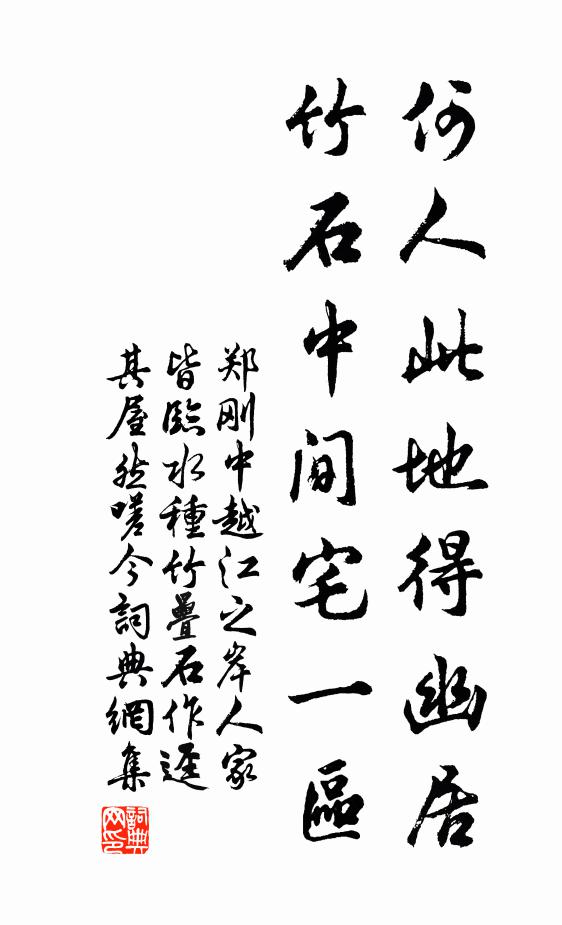 何人此地得幽居
竹石中間宅一區
郑刚中越江之岸人家
皆臨水種竹疊石作逕
其屋然嗟今詞典網集
詞典网印